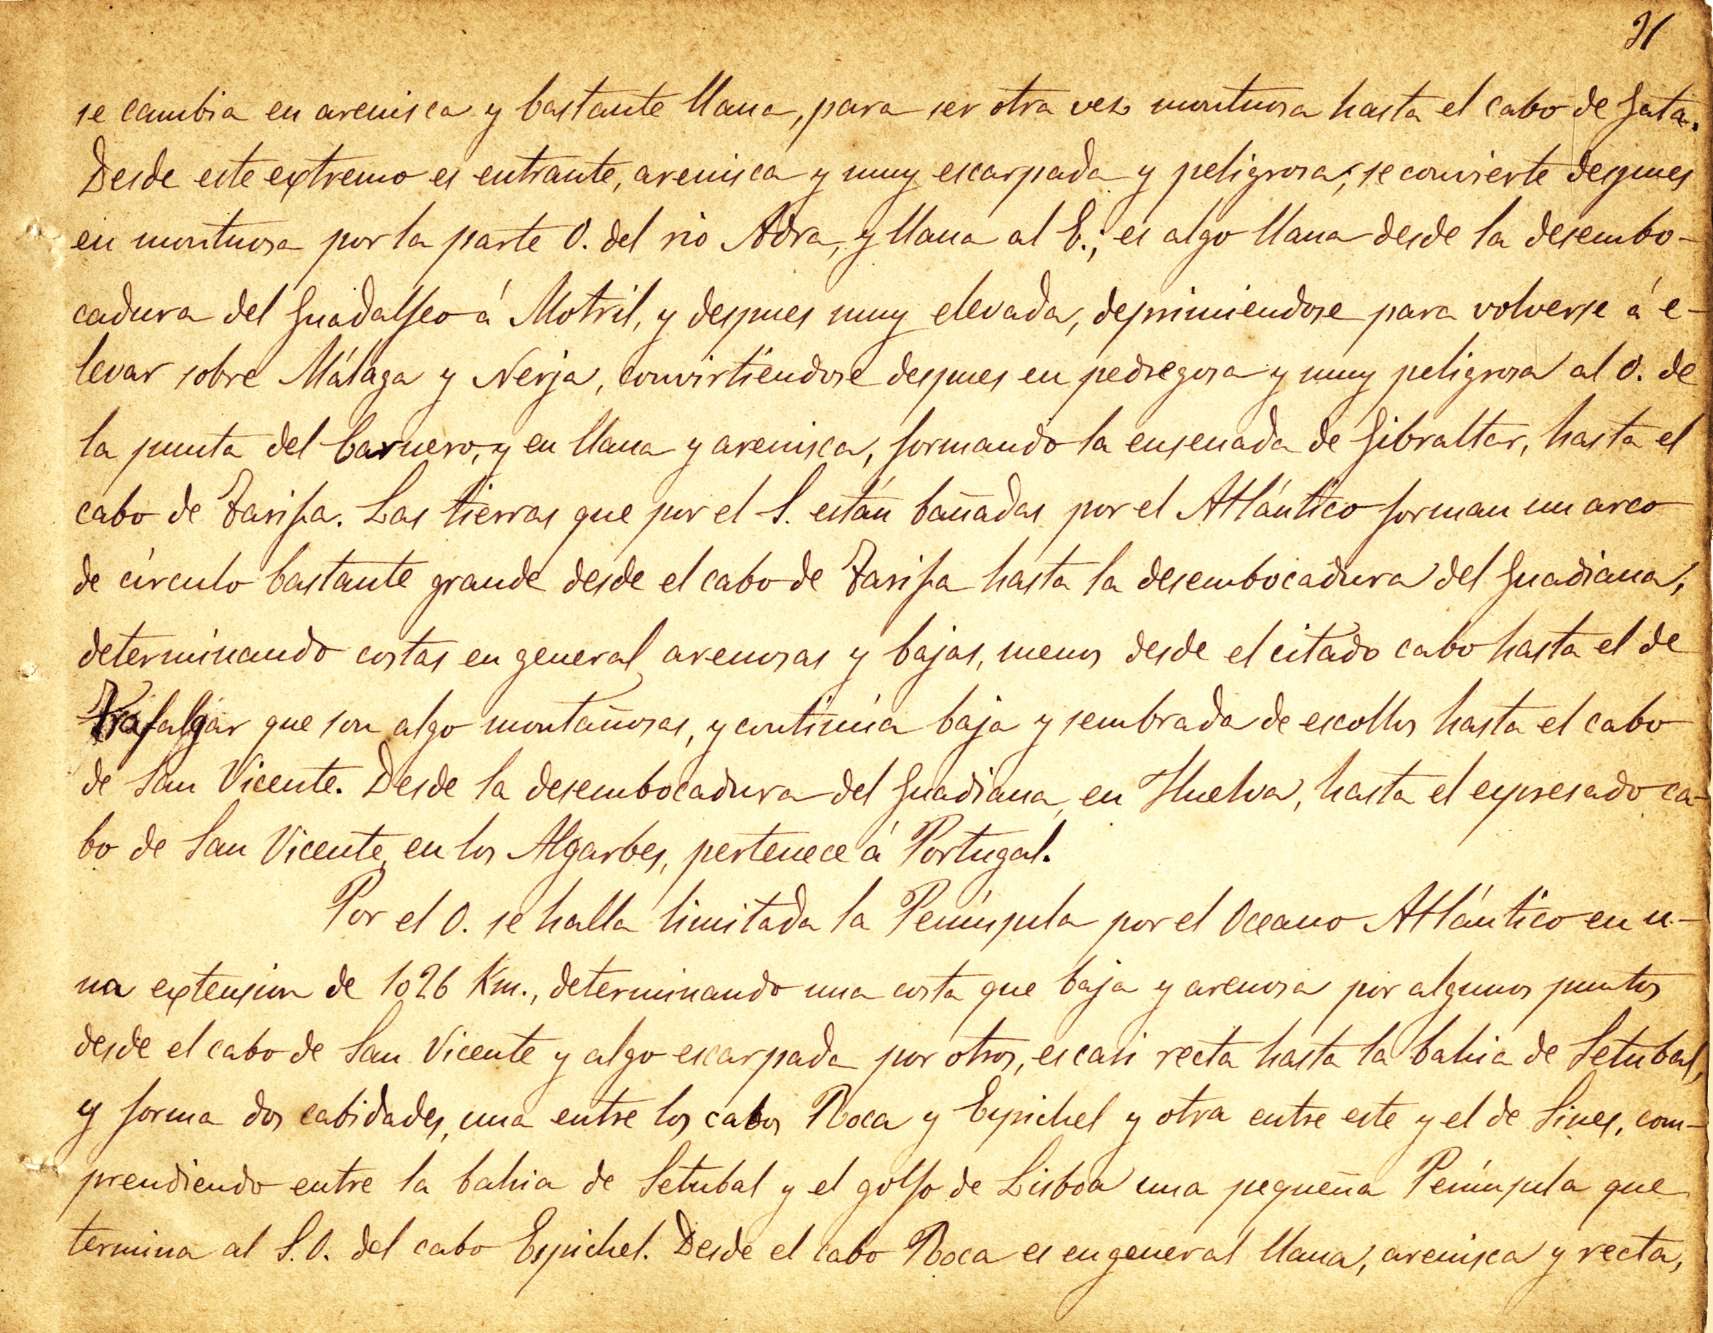 21
se cambia en arenisca y bastante llana, para ser otra vez montuosa hasta el cabo de Gata.
Desde este extremo es entrante, arenisca y muy escarpada y peligrosa; se convierte despues
en montuosa por la parte O. del rio Adra, y llana al E.; es algo llana desde la desembo-
cadura del Guadalfeo á Motril, y despues muy elevada, deprimiendose para volverse á e-
levar sobre Málaga y Nerja, convirtiéndose despues en pedregosa y muy peligrosa al O. de
la punta del Carnero, y en llana y arenisca, formando la ensenada de Gibraltar, hasta el
cabo de Tarifa. Las tierras que por el S. están bañadas por el Atlántico forman un arco
de círculo bastante grande desde el cabo de Tarifa hasta la desembocadura del Guadiana,
determinando costas en general arenosas y bajas, menos desde el citado cabo hasta el de
Trafalgar que son algo montañosas, y continúa baja y sembrada de escollos hasta el cabo
de San Vicente. Desde la desembocadura del Guadiana, en Huelva, hasta el expresado ca-
bo de San Vicente, en los Algarbes, pertenece á Portugal.
Por el O. se halla limitada la Península por el Oceano Atlántico en u-
na extension de 1026 Km., determinando una costa que baja y arenosa por algunos puntos
desde el cabo de San Vicente y algo escarpada por otros, es casi recta hasta la bahia de Setubal,
y forma dos cabidades, una entre los cabos Roca y Espichel y otra entre este y el de Sines, com-
prendiendo entre la bahia de Setubal y el golfo de Lisboa una pequeña Península que
termina al S.O. del cabo Espichel. Desde el cabo Roca es en general llana, arenisca y recta,